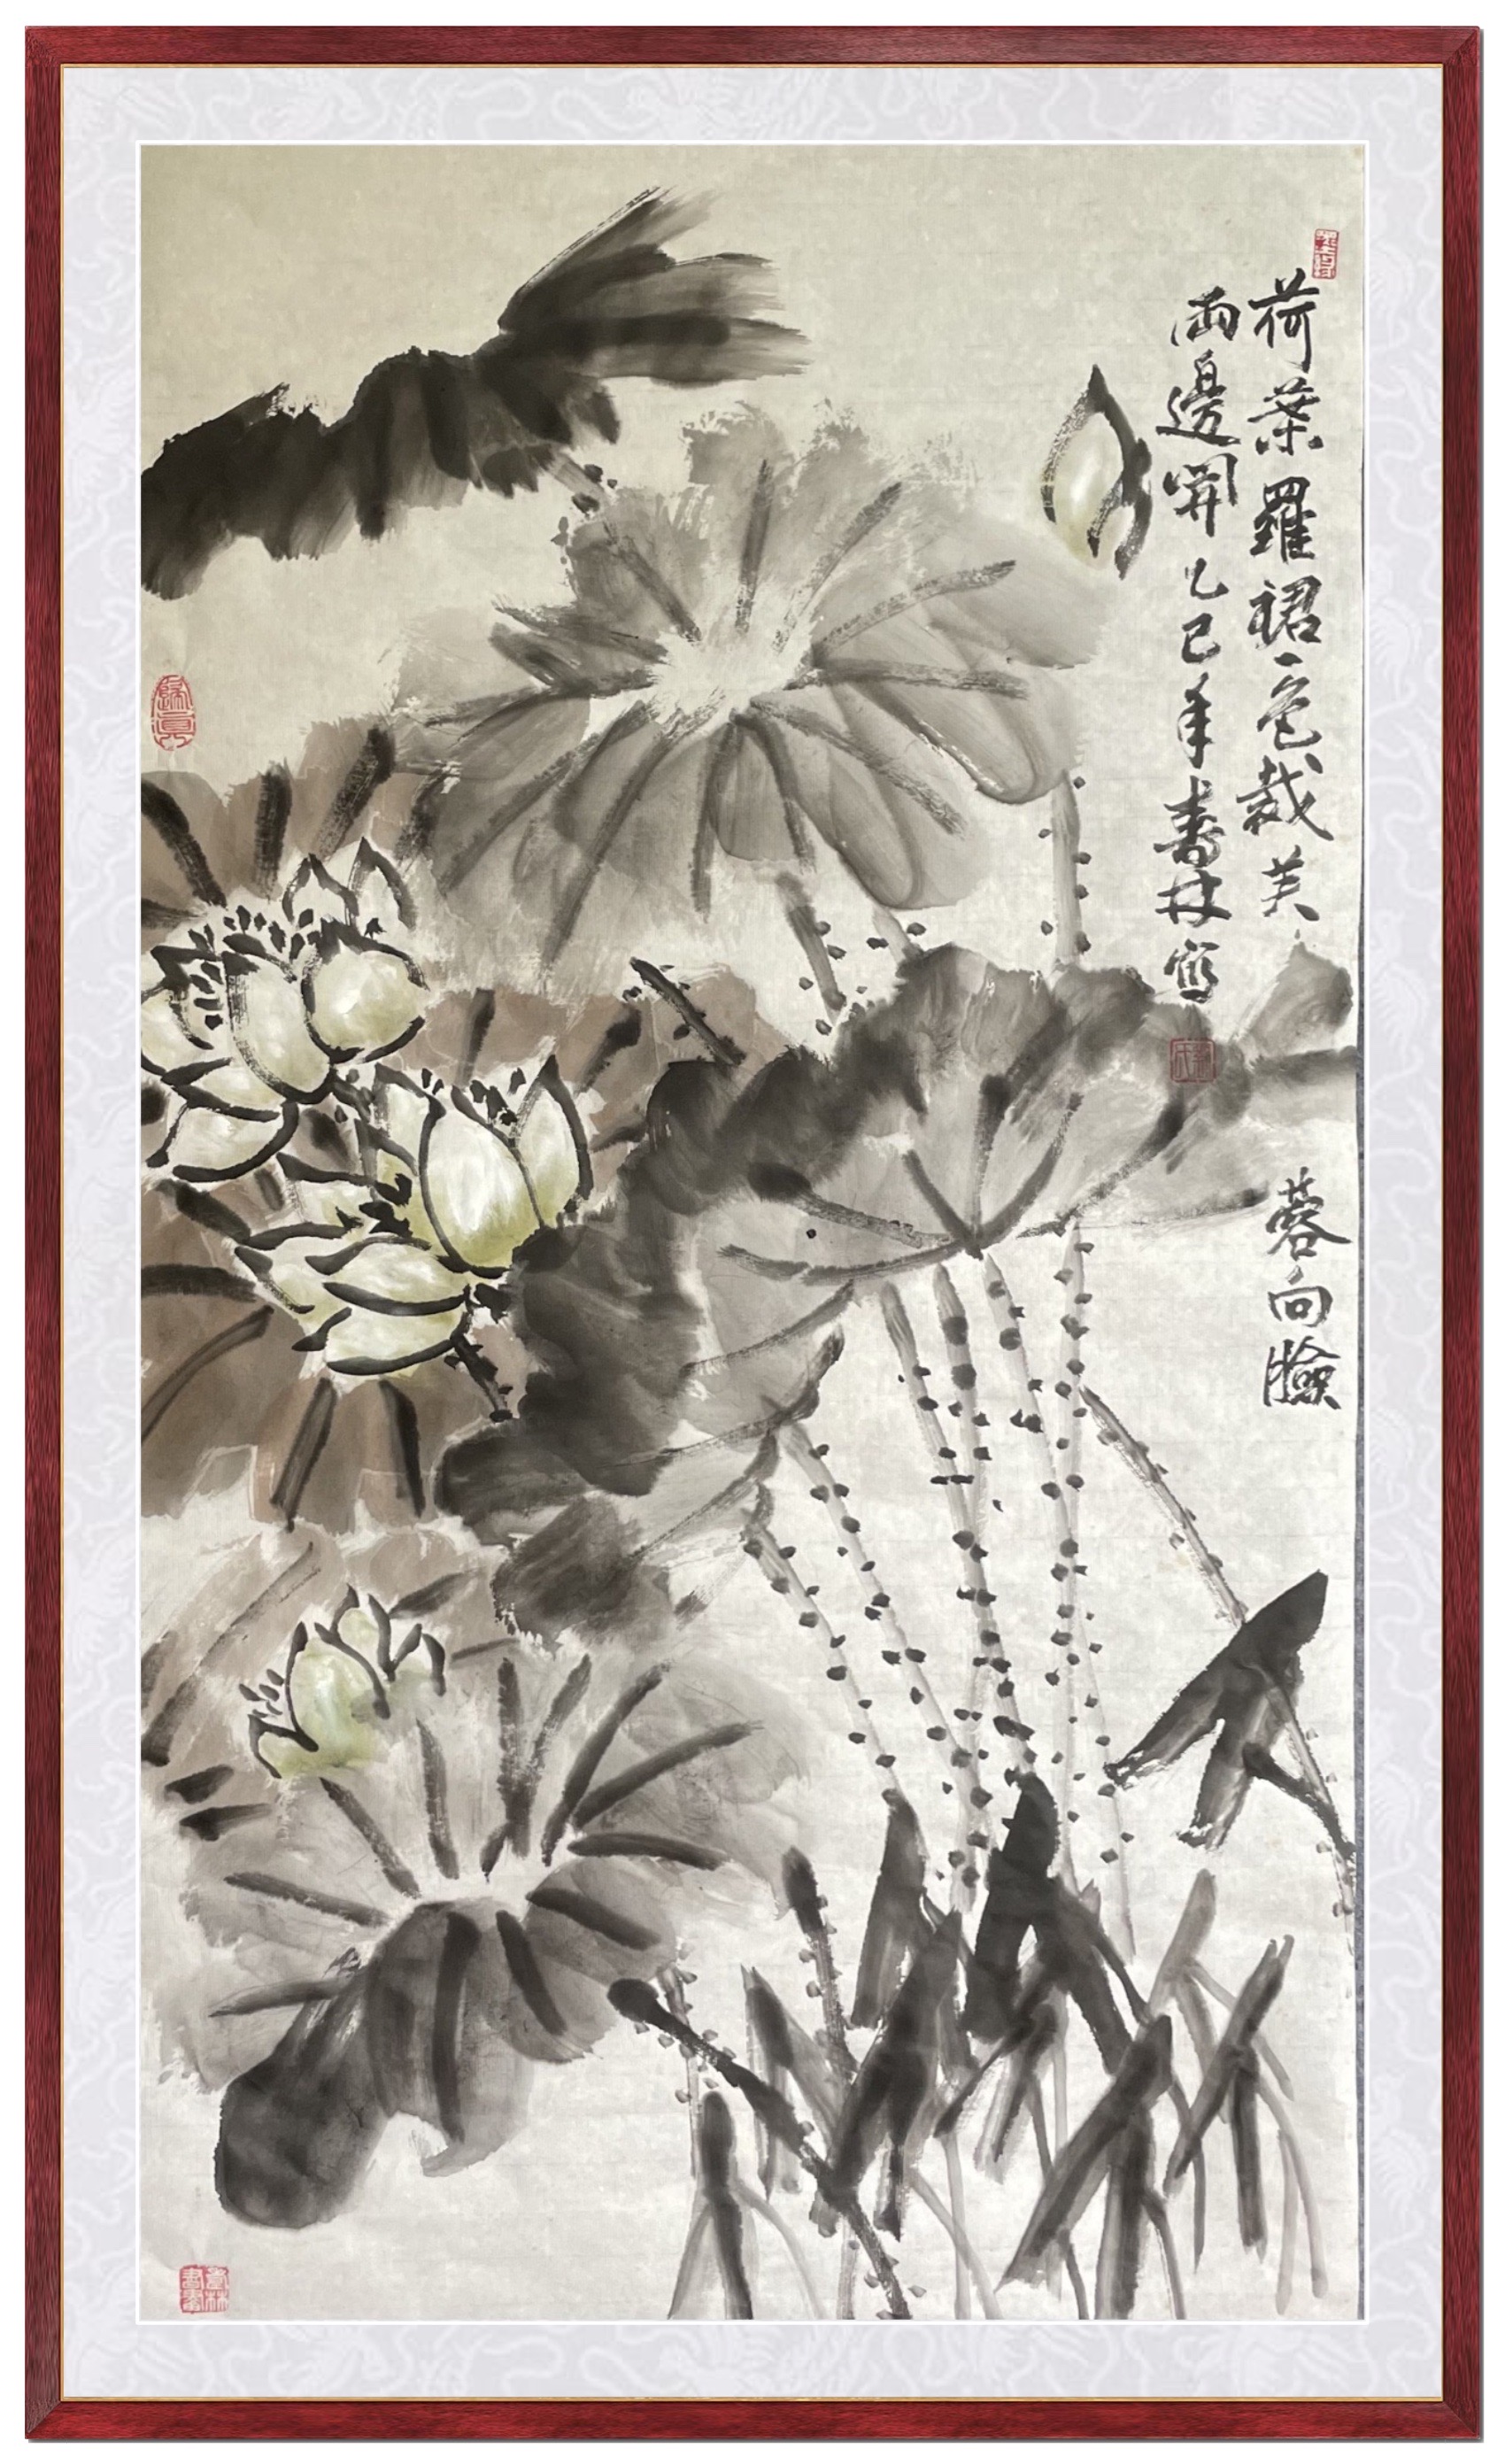 荷葉羅裙一色裁芙蓉向臉
兩邊開乙巳年壽林寫
壽林書畫